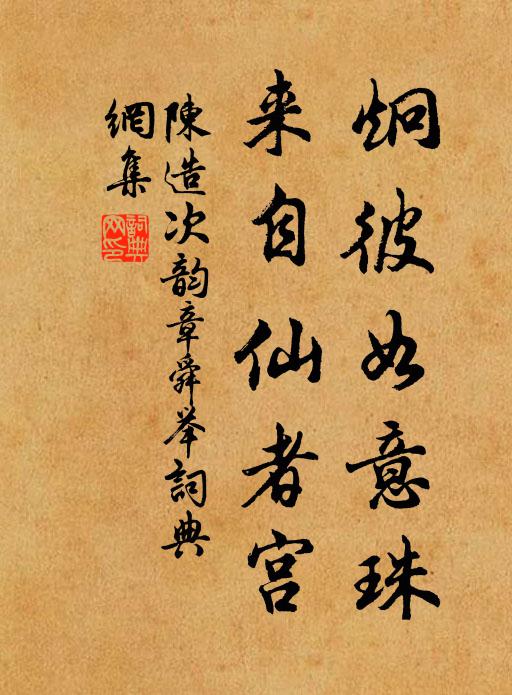 炯彼如意珠
来自仙者宫
陳造次韵章舜举詞典
網集
詞典
网印